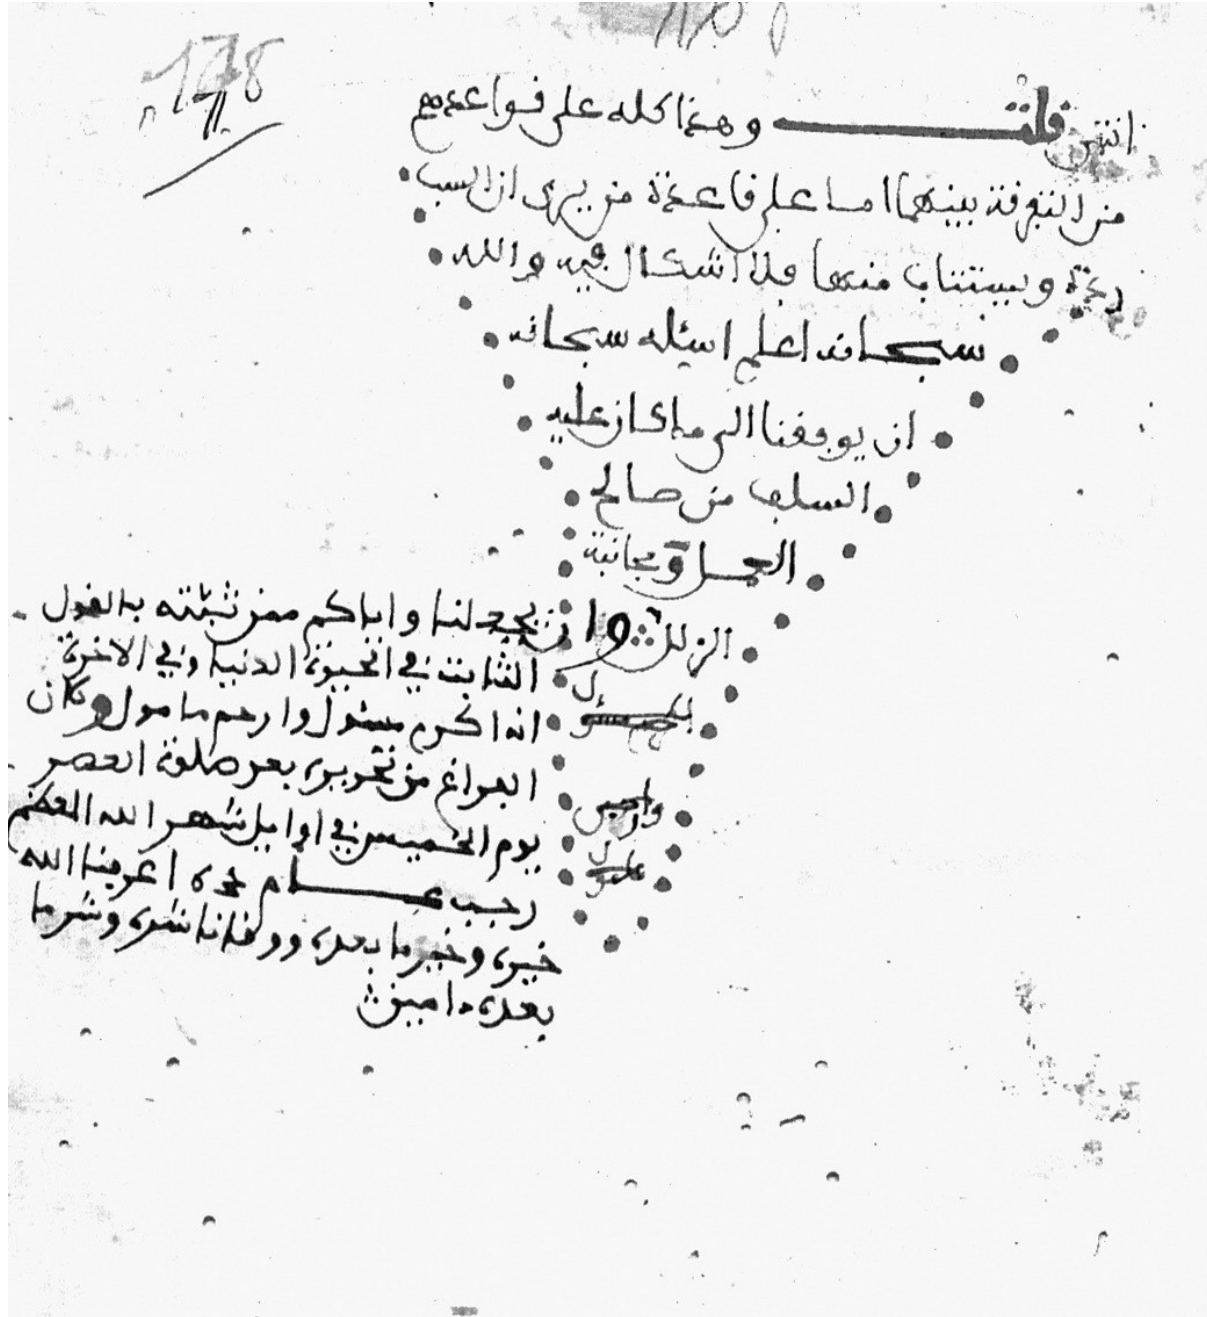 178
انتهى قلت وهذا كله على قواعدهم
من التفرقة بينهما اما على قاعدة من يرى ان السب
ردة ويستتاب منها فلا اشكال فيه والله
سبحانه اعلم اسئله سبحانه
ان يوفقنا الى ما كان عليه
السلف من صالح
العمل ومجانبة
الزلل وان يجعلنا واياكم ممن تثبته بالقول
الثابت في الحيوة الدنيا وفي الاخرة
انه اكرم مسئول وارحم مامول وكان
الفراغ من تحريره بعد صلوة العصر
يوم الخميس في اوايل شهر الله المعظم
رجب عام اعرفنا الله
خيره وخير ما بعده ووقانا شره وشر ما
بعده ءامين